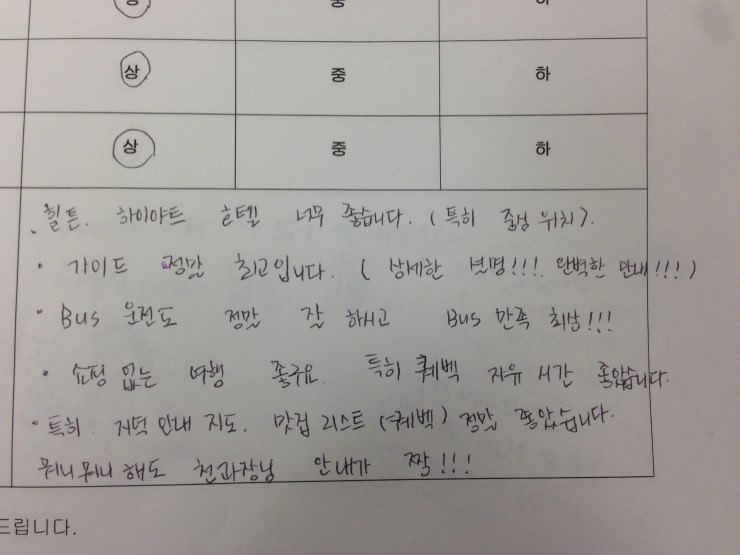 상 중 하
상 중 하
상 중 하
힐튼. 하이야트 호텔 너무 좋습니다. (특히 중심 위치).
· 가이드 정말 최고입니다. (상세한 설명!!! 완벽한 안내!!!)
· Bus 운전도 정말 잘 하시고 Bus 만족 최상!!!
· 쇼핑 없는 여행 좋구요. 특히 퀘벡 자유 시간 좋았습니다.
· 특히. 저녁 안내 지도. 맛집 리스트 (퀘벡) 정말 좋았습니다.
뭐니뭐니 해도 천과장님 안내가 짱!!!
드립니다.